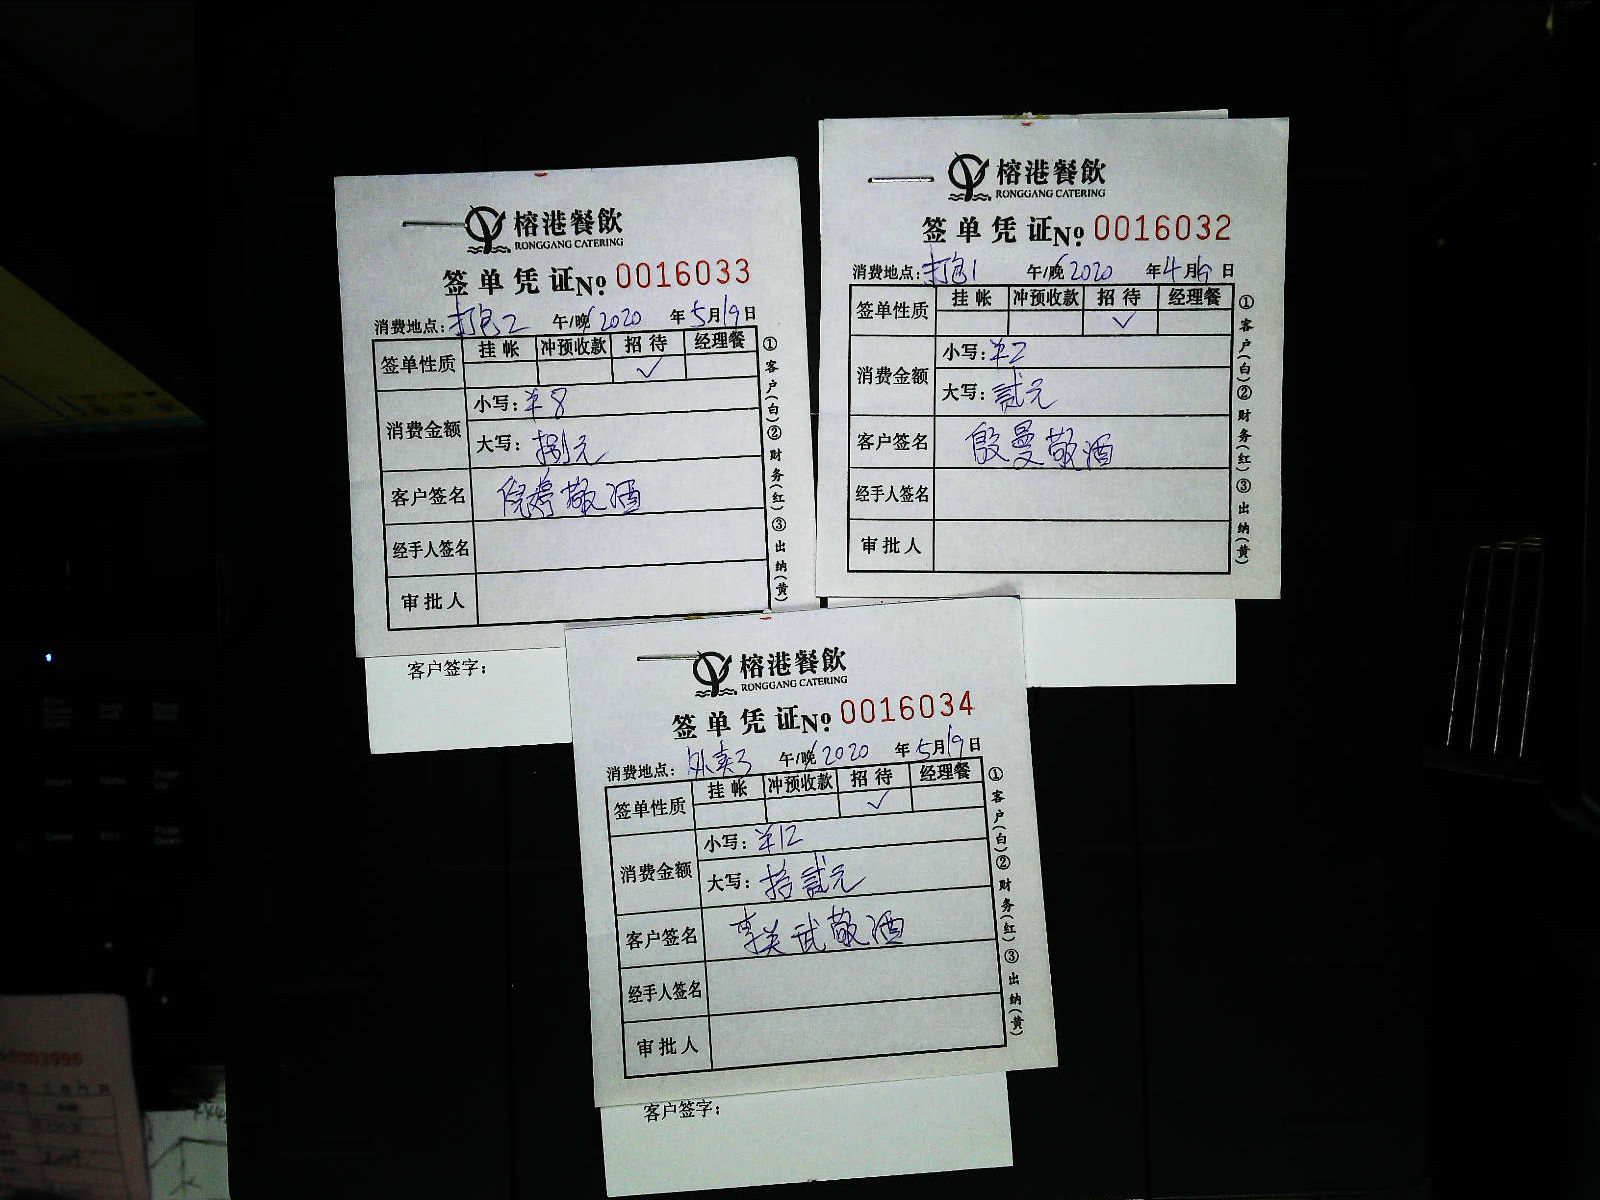 榕港餐飲
RONGGANG CATERING
签单凭证 No. 0016033
消费地点：打包2 午/晚 2020 年 5 月 19 日
签单性质 挂帐 冲预收款 招待 经理餐
✓
消费金额 小写：¥8
大写：捌元
客户签名 倪婷敬酒
经手人签名
审批人
①客户(白)②财务(红)③出纳(黄)
客户签字：
榕港餐飲
RONGGANG CATERING
签单凭证 No. 0016032
消费地点：打包1 午/晚 2020 年 4 月 19 日
签单性质 挂帐 冲预收款 招待 经理餐
✓
消费金额 小写：¥2
大写：贰元
客户签名 殷曼敬酒
经手人签名
审批人
①客户(白)②财务(红)③出纳(黄)
榕港餐飲
RONGGANG CATERING
签单凭证 No. 0016034
消费地点：外卖3 午/晚 2020 年 5 月 19 日
签单性质 挂帐 冲预收款 招待 经理餐
✓
消费金额 小写：¥12
大写：拾贰元
客户签名 李关武敬酒
经手人签名
审批人
①客户(白)②财务(红)③出纳(黄)
客户签字：
0003995